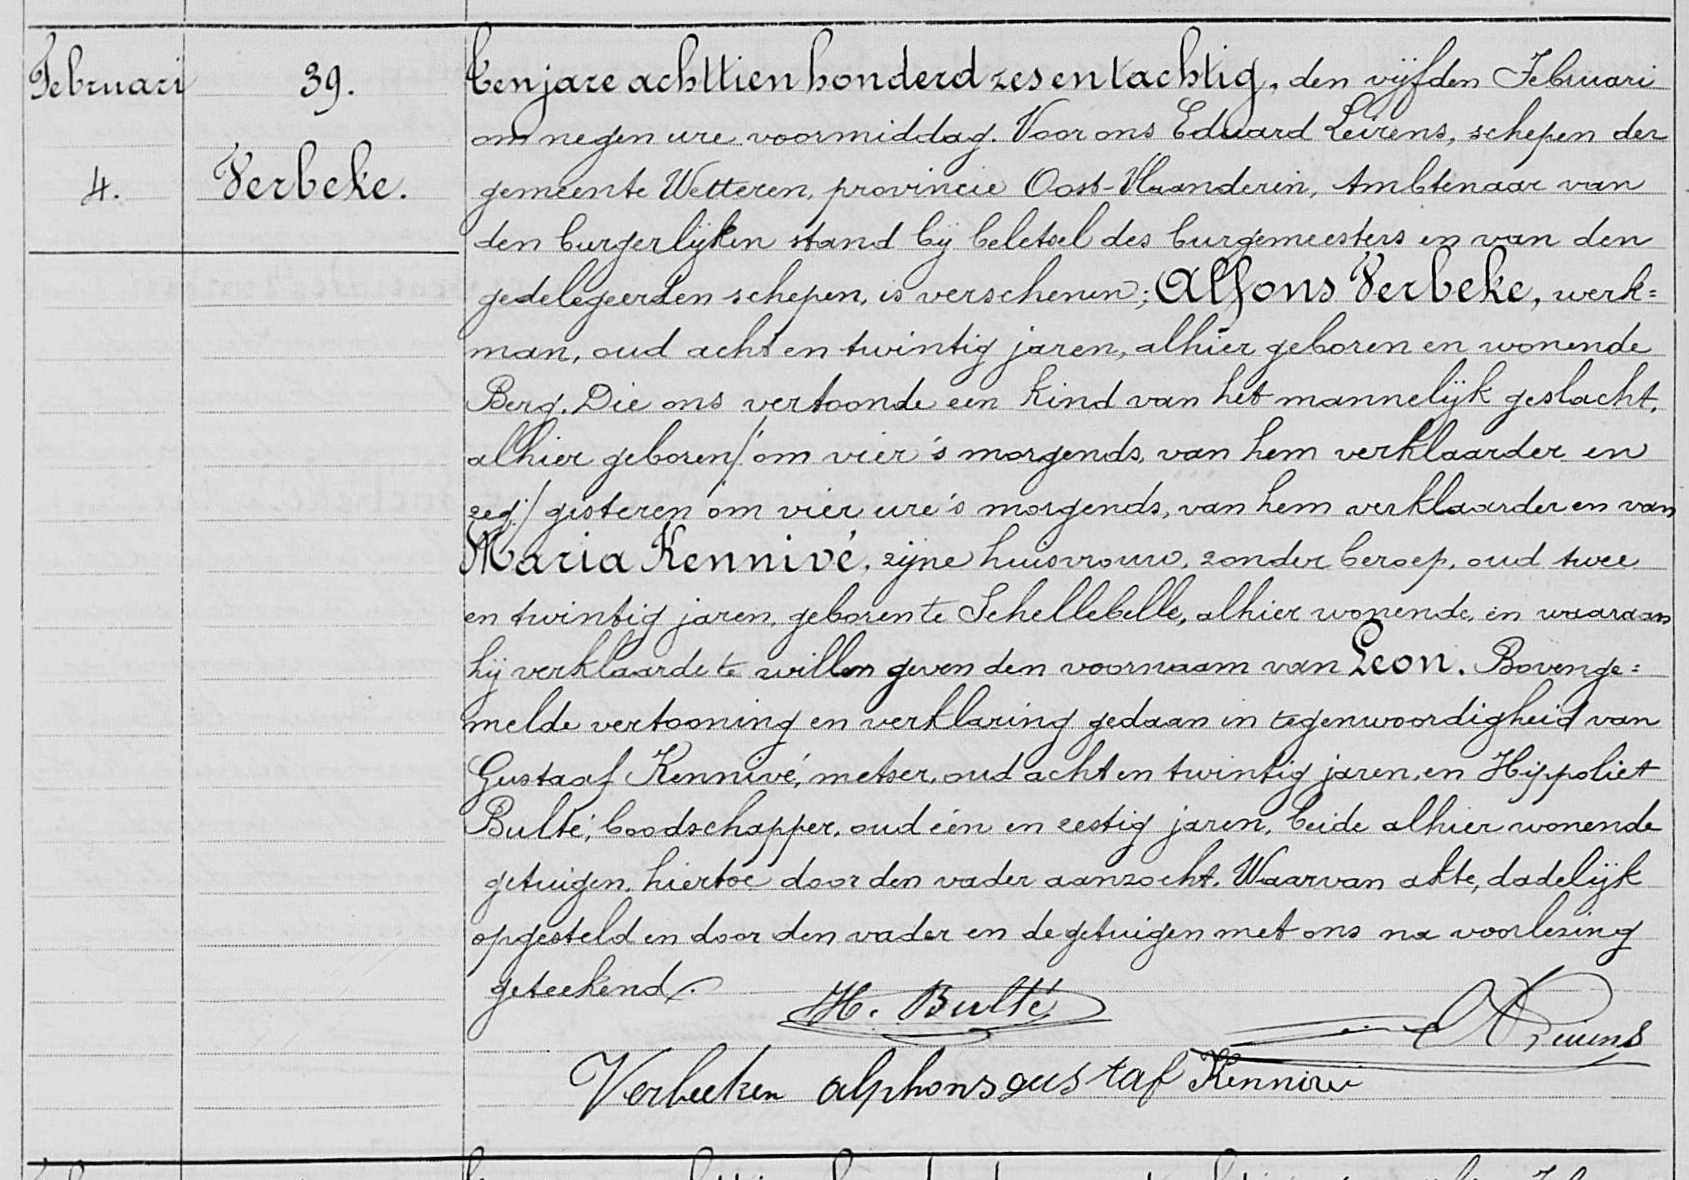 Februari 39. Ten jare achttien honderd zes en tachtig, den vijfden Februari
om negen ure voormiddag. Voor ons Eduard Leirens, schepen der
4. Verbeke. gemeente Wetteren, provincie Oost-Vlaanderen, Ambtenaar van
den burgerlijken stand bij beletsel des burgemeesters en van den
gedelegeerden schepen, is verschenen; Alfons Verbeke, werk=
man, oud acht en twintig jaren, alhier geboren en wonende
Berg. Die ons vertoonde een kind van het mannelijk geslacht,
alhier geboren/ om vier 's morgends, van hem verklaarder en
zeg:/ gisteren om vier ure 's morgends, van hem verklaarder en van
Maria Kennivé, zijne huisvrouw, zonder beroep, oud twee
en twintig jaren, geboren te Schellebelle, alhier wonende, en waaraan
hij verklaarde te willen geven den voornaam van Leon. Bovenge=
melde vertooning en verklaring gedaan in tegenwoordigheid van
Gustaaf Kennivé, metser, oud acht en twintig jaren, en Hippoliet
Bulté, boodschapper, oud één en zestig jaren, beide alhier wonende
getuigen, hiertoe door den vader aanzocht. Waarvan akte, dadelijk
opgesteld en door den vader en de getuigen met ons na voorlezing
geteekend.
H. Bulté Leirens
Verbeeken alphons gustaf Kennive